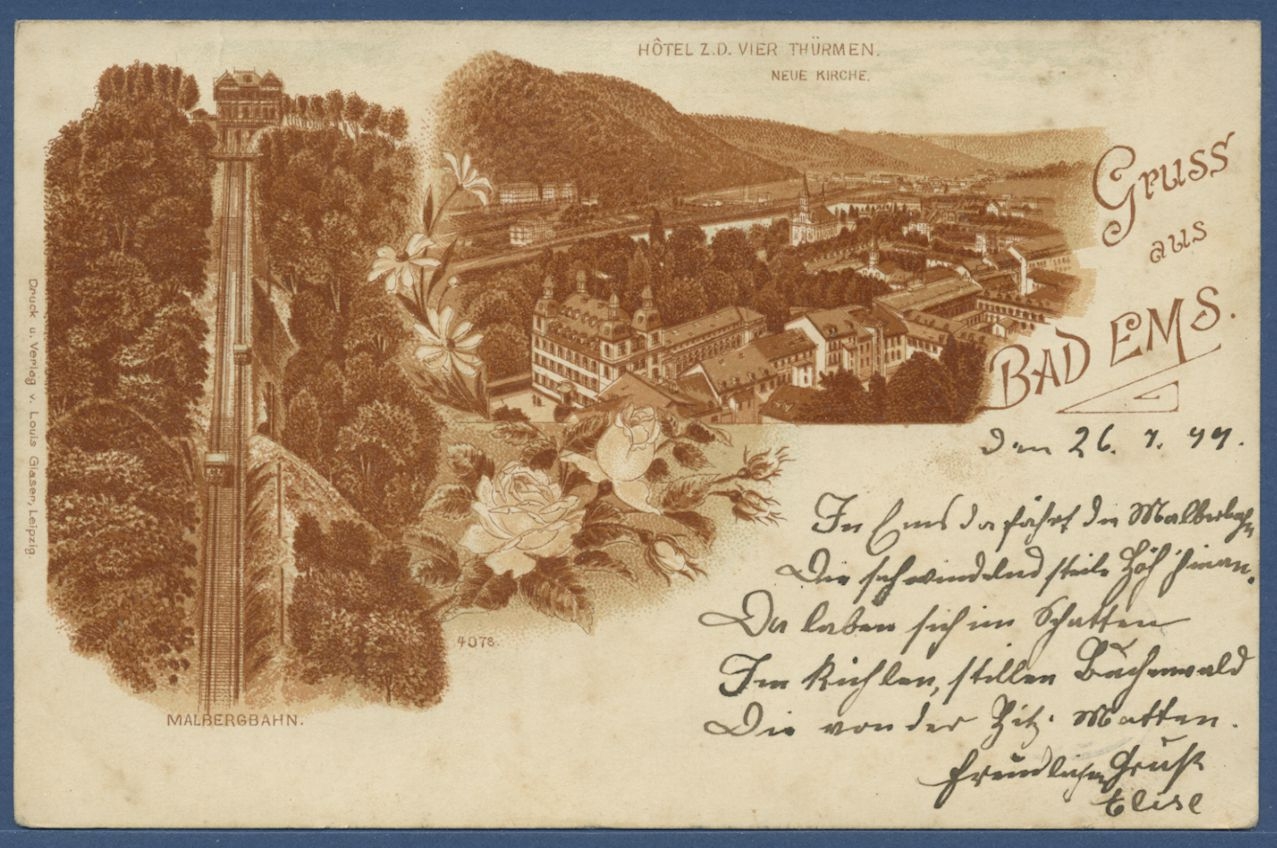 HÔTEL Z.D. VIER THÜRMEN.
NEUE KIRCHE.
Gruss
aus
BAD EMS.
Druck u. Verlag v. Louis Glaser, Leipzig.
4078.
MALBERGBAHN.
den 26. 7. 99.
In Ems da fährt die Malbergbahn
Die schwindelnd steile Höh' hinan.
Da laben sich im Schatten
Im kühlen, stillen Buchenwald
Die von der Hitz' Matten.
Freundlichen Gruß
Elise